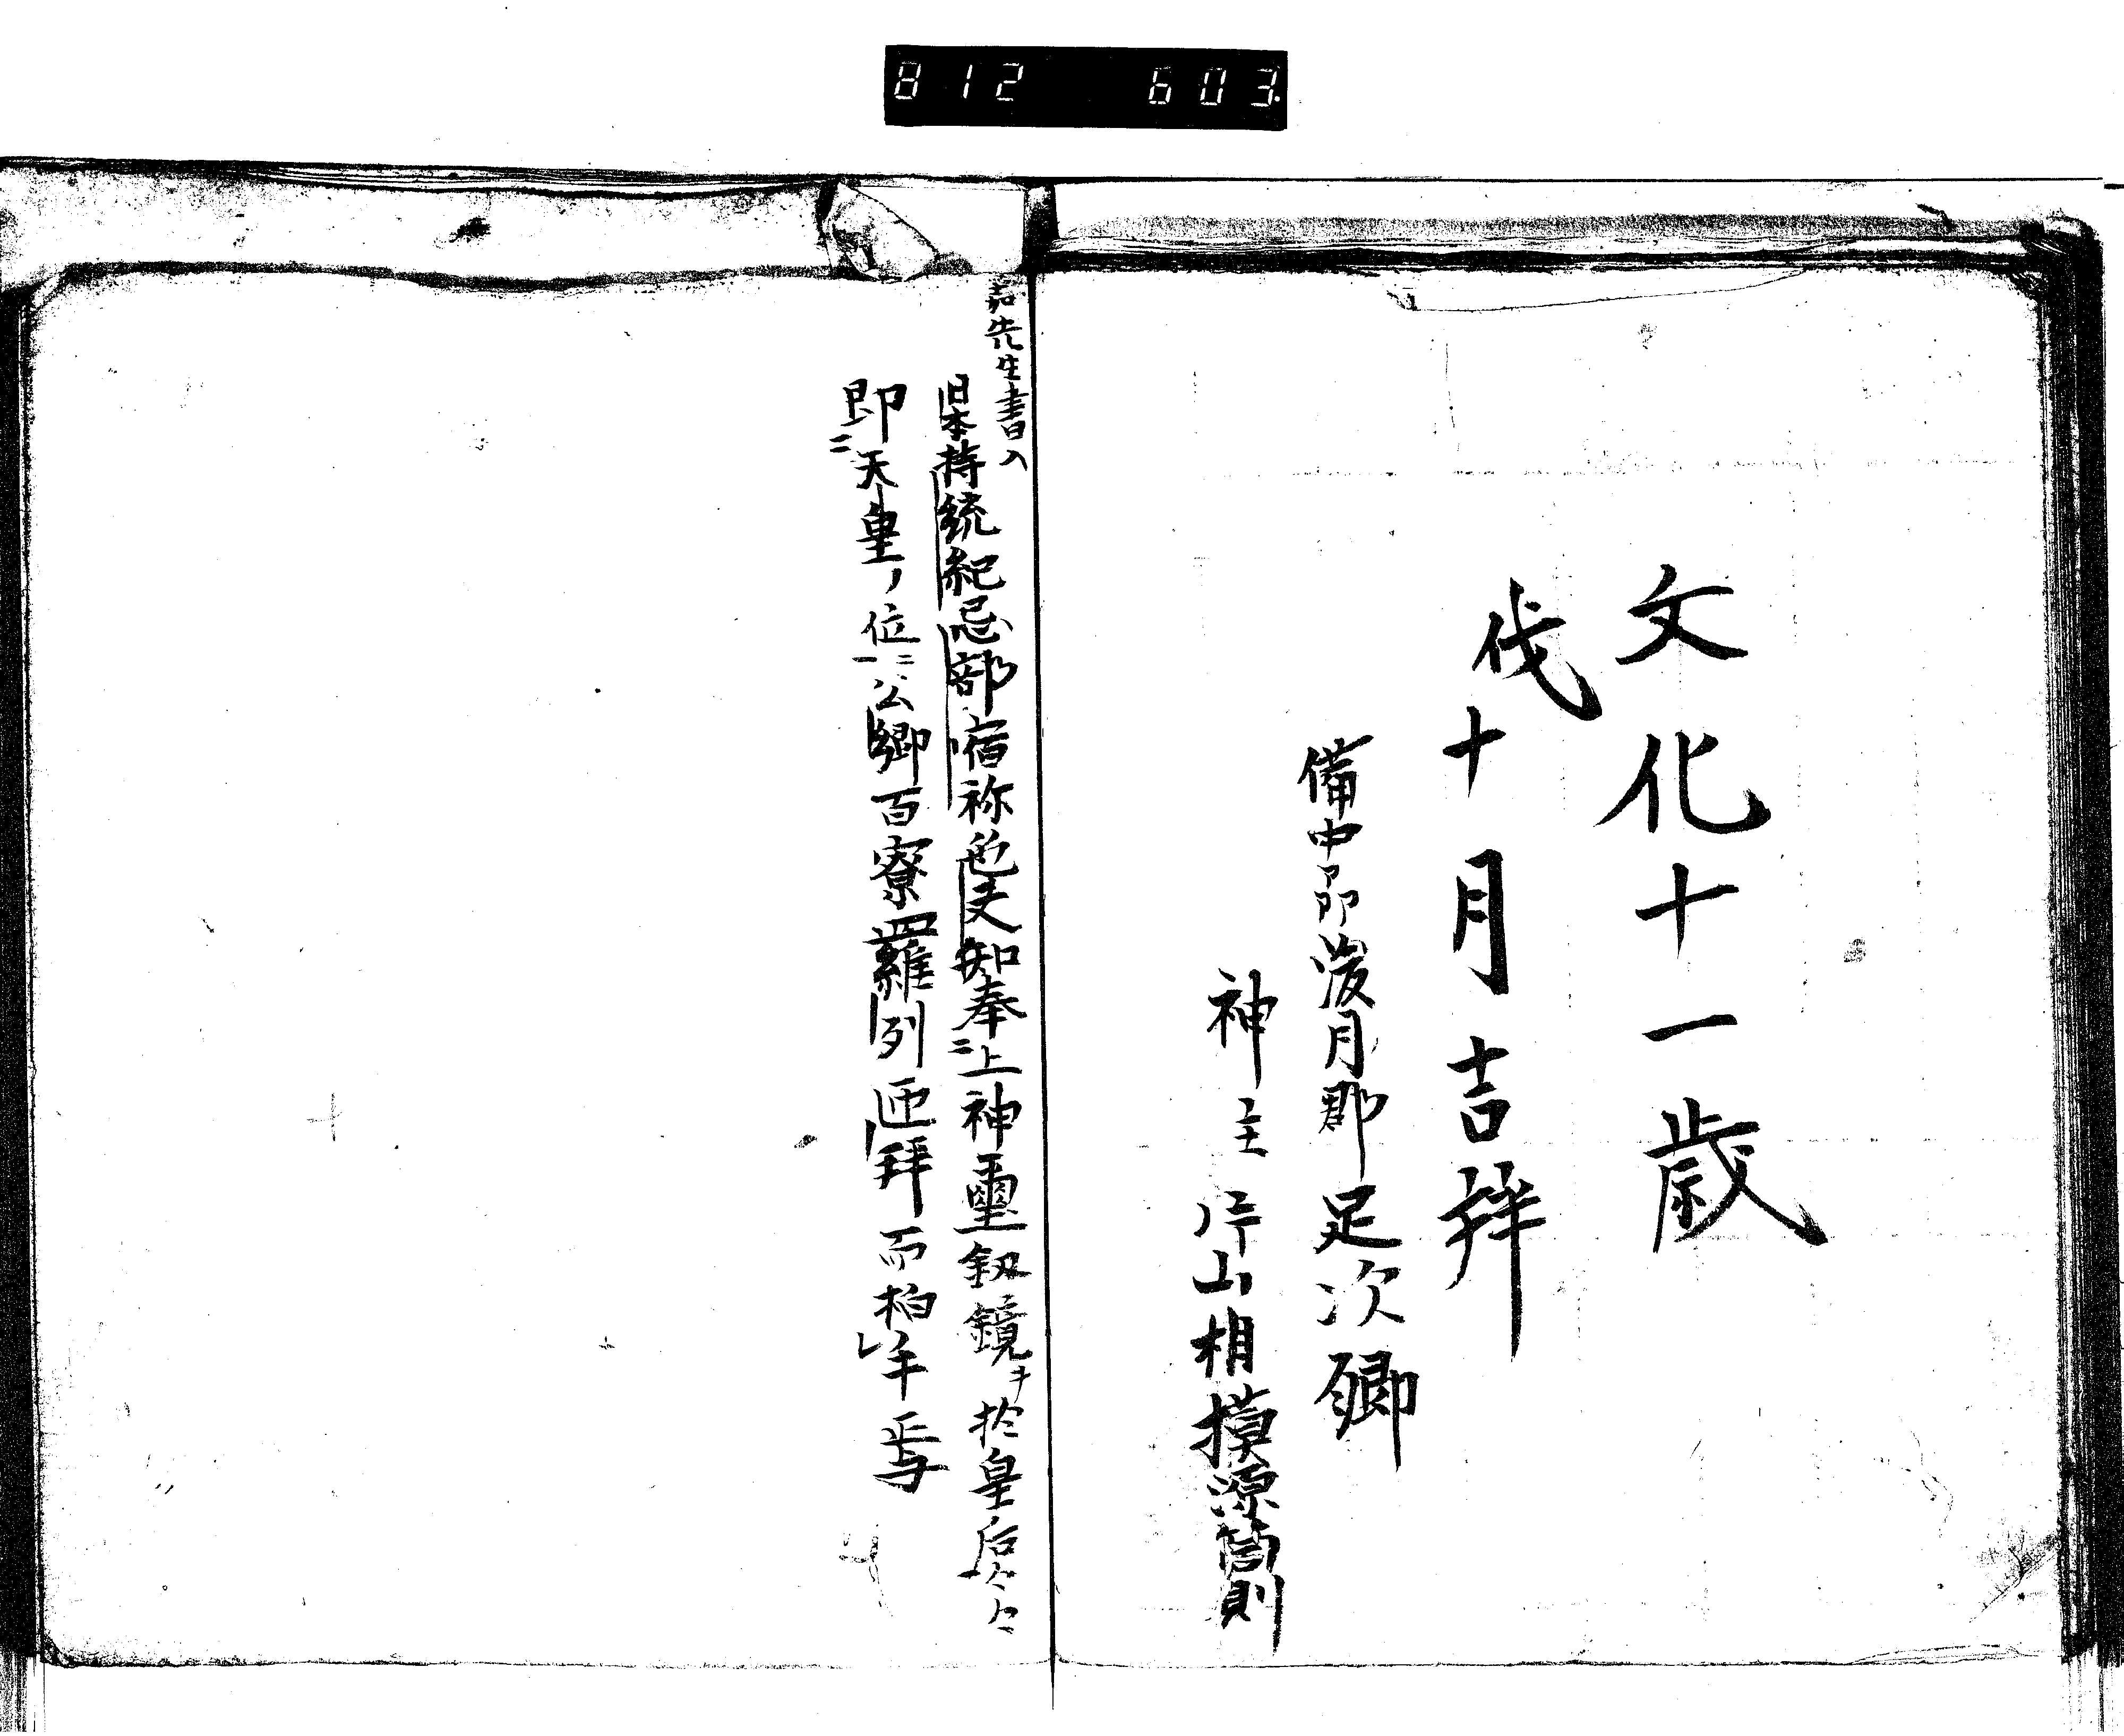 812 603
文化十一歳
戌十月吉祥
備中國後月郡足次郷
神主片山相摸源筒則
嘉先生書入
日本持統紀忌部宿祢色夫知奉二上神璽釼鏡ヲ於皇后々々
即二天皇ノ位一ニ公卿百寮羅列匝拜而拍レ手焉